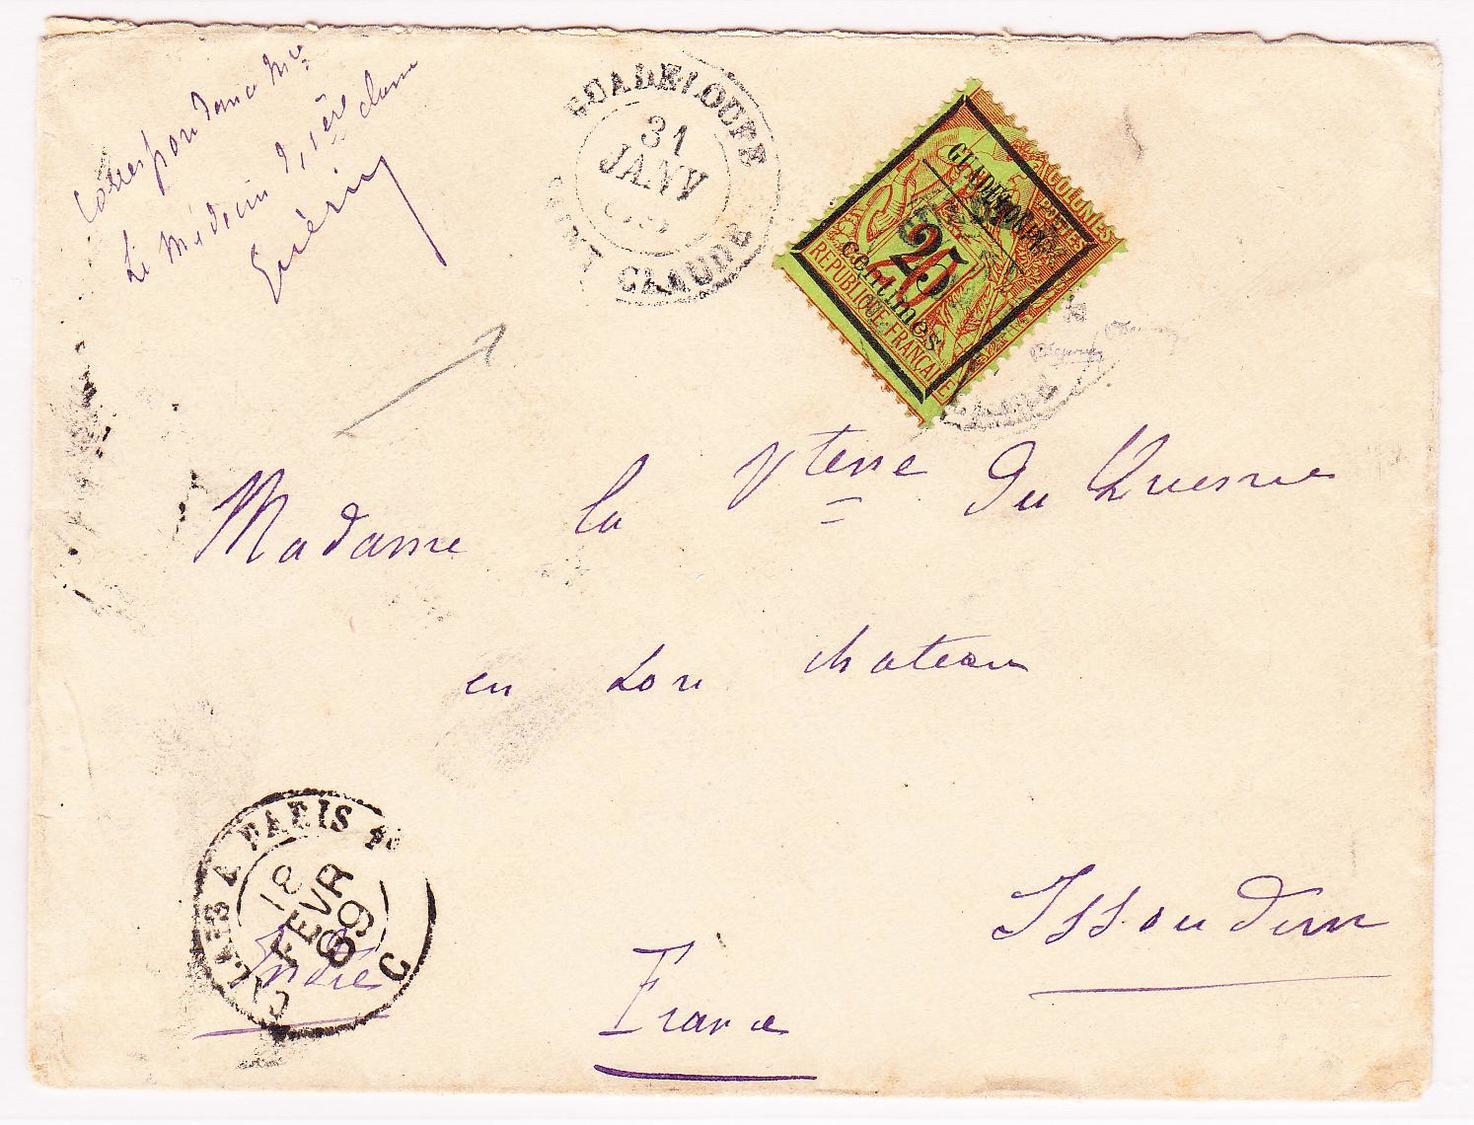 Correspondance Mre
Le Médecin d, 1ère classe
Guérin
GUADELOUPE
31
JANV
CLAUDE
GUADELOUPE
25
centimes
20
COLONIES
POSTES
REPUBLIQUE FRANÇAISE
Madame la Vtesse Du Quesne
en son chateau
Issoudun
Indre
France
CALAIS A PARIS
18
FEVR
89
C